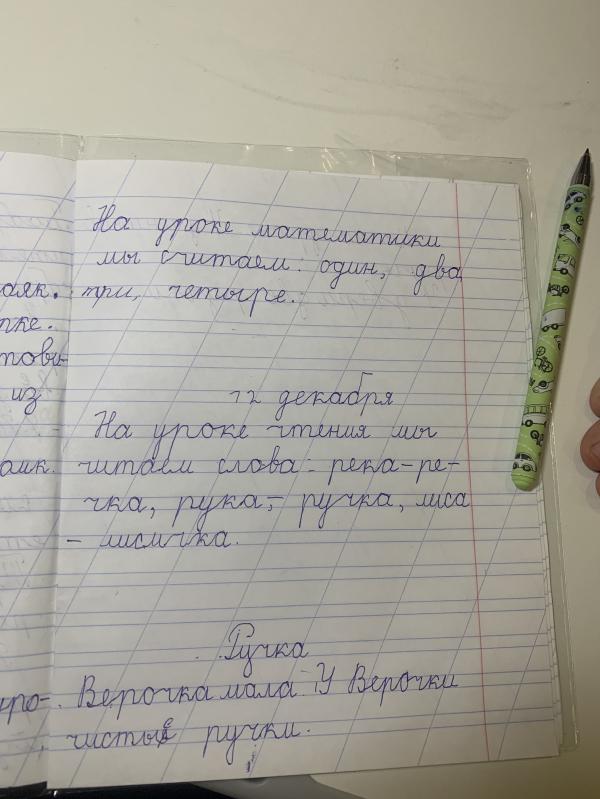 На уроке математики
мы считаем: один, два
три, четыре.
12 декабря
На уроке чтения мы
читаем слова: река-ре-
чка, рука,- ручка, лиса
- лисичка.
Ручка
Верочка мала. У Верочки
чистые ручки.
аяк.
пке.
из